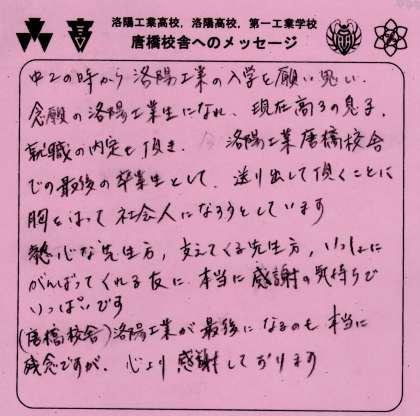 洛陽工業高校，洛陽高校，第一工業学校
唐橋校舎へのメッセージ
中2の時から洛陽工業の入学を願い思い、
念願の洛陽工業生になれ、現在高3の息子、
就職の内定を頂き、洛陽工業唐橋校舎
での最後の卒業生として、送り出して頂くことに
胸をはって社会人になろうとしています
熱心な先生方，支えてくる先生方，いっしょに
がんばってくれる友に本当に感謝の気持ちで
いっぱいです
(唐橋校舎)洛陽工業が最後になるのも本当に
残念ですが、心より感謝しております